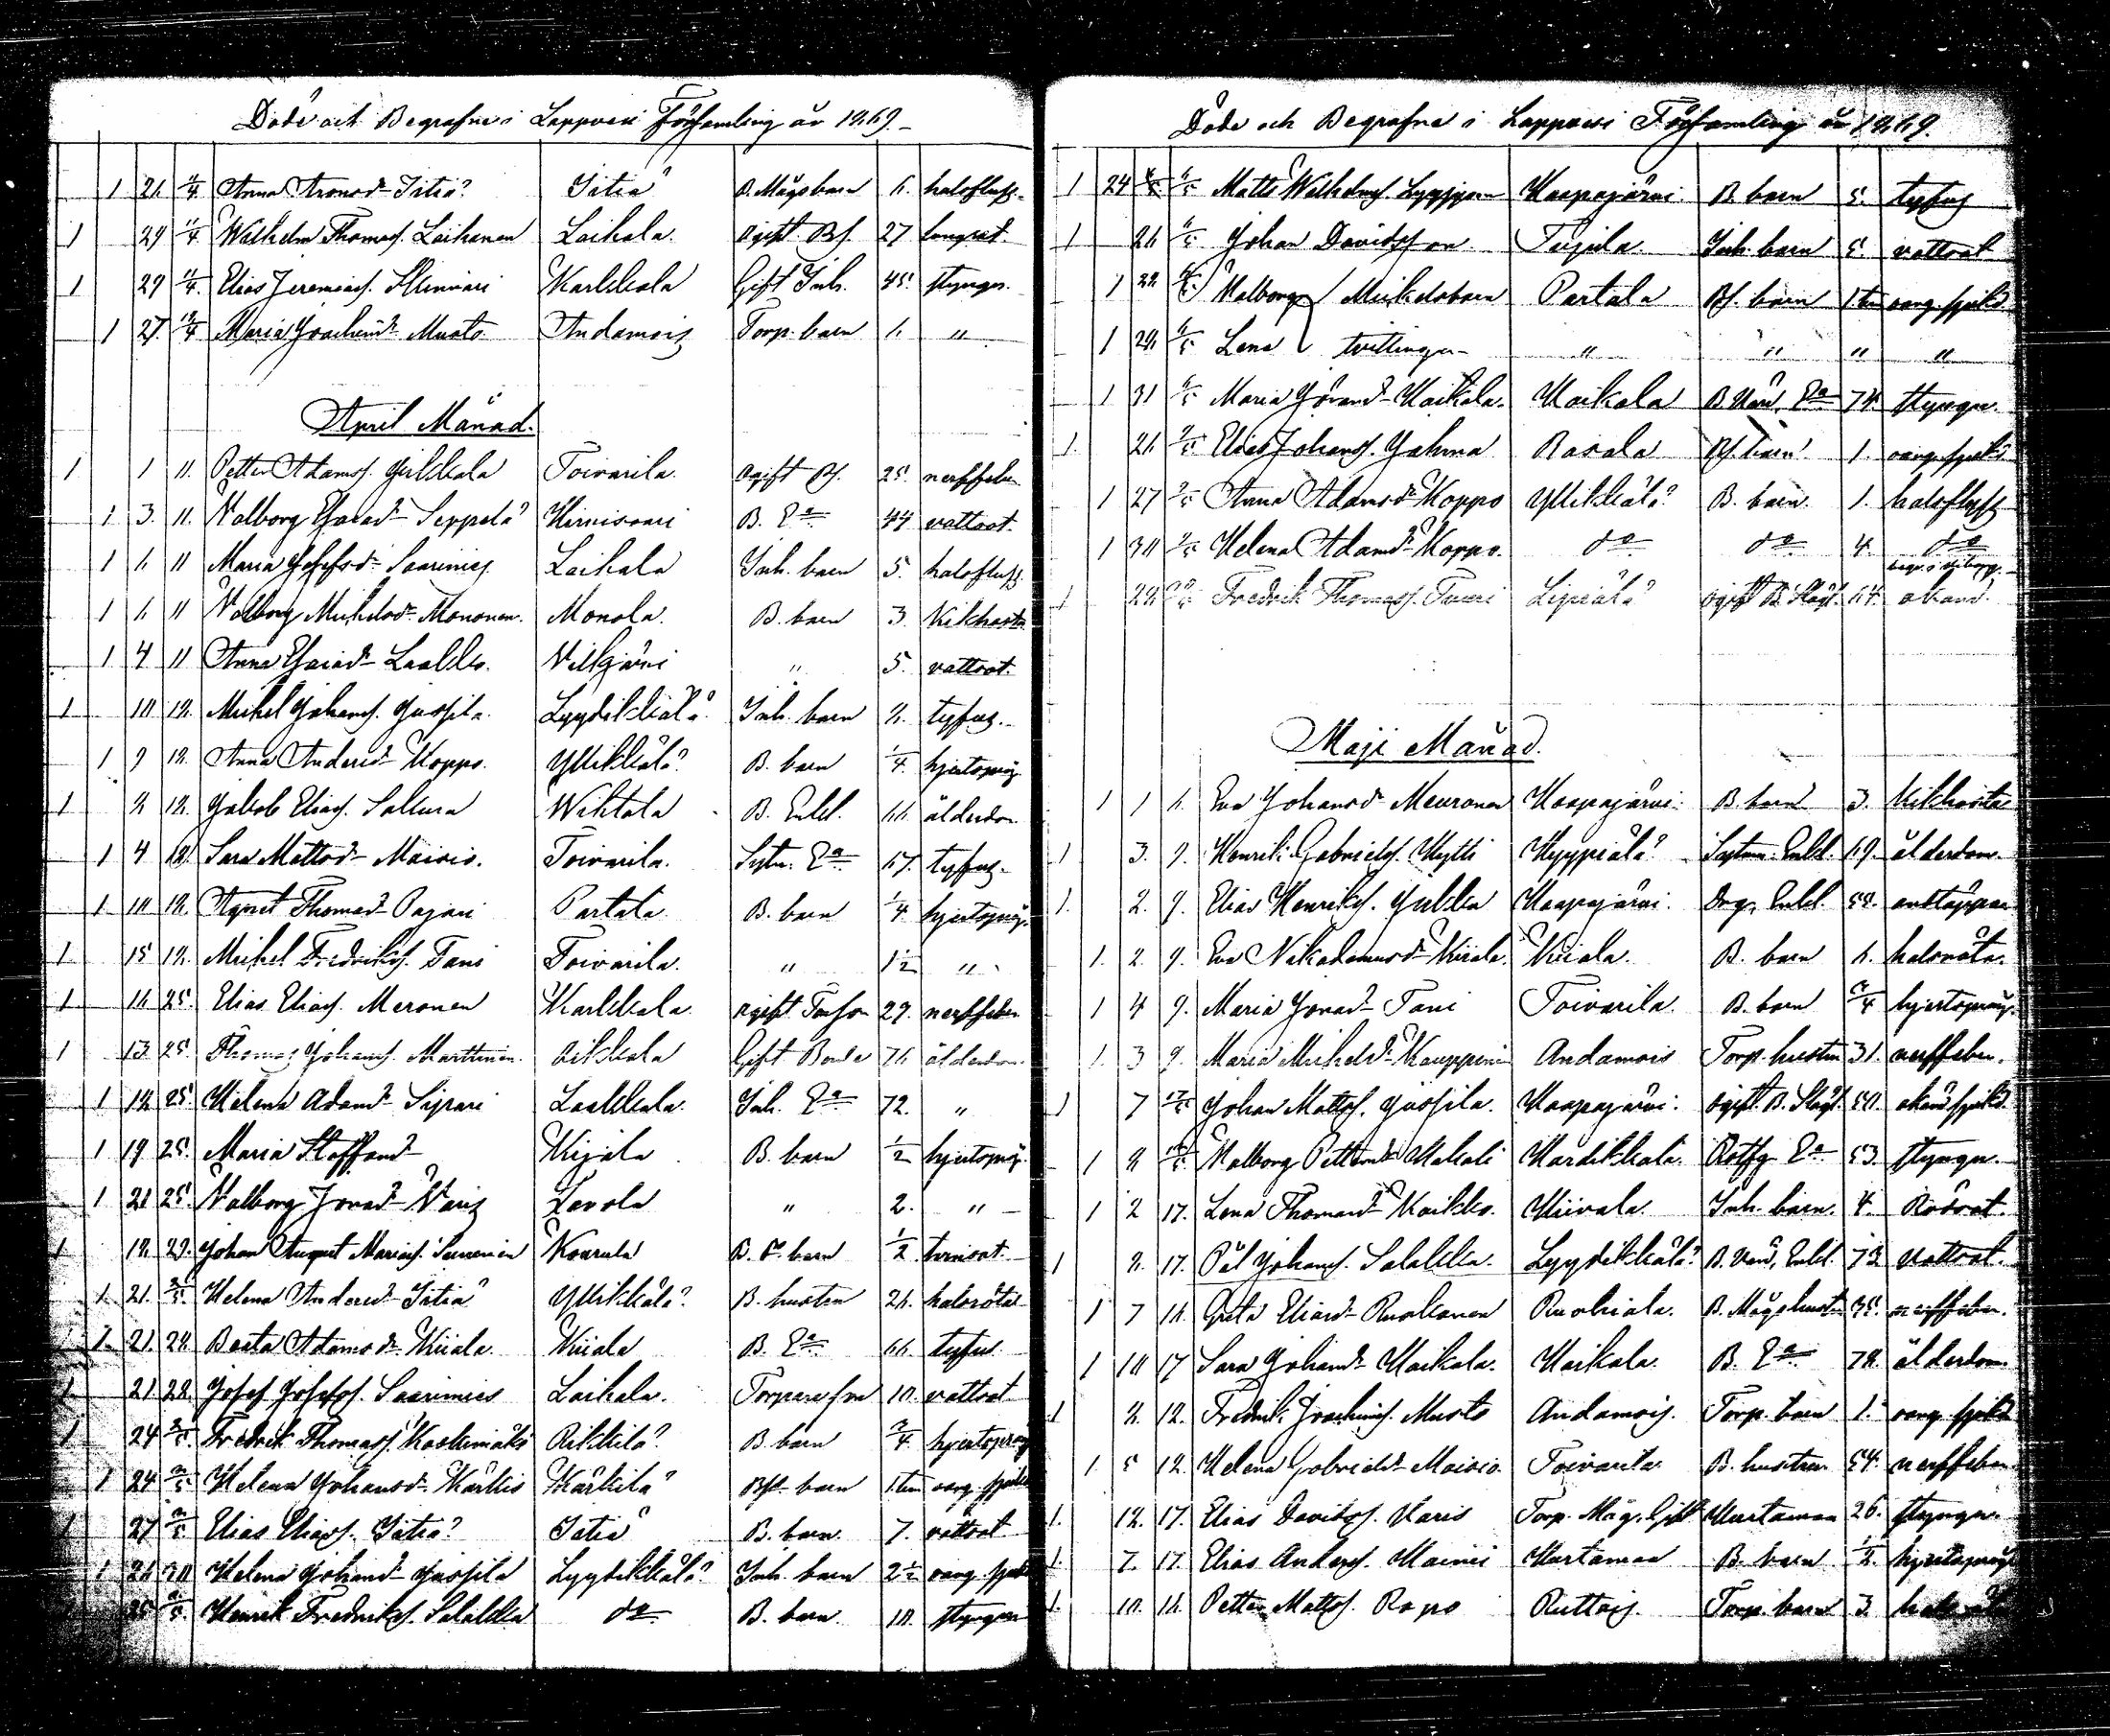 Döde och Begrafne i Lappvesi Församling år 1869.
1 26 11/4 Anna Aronsdr Jätiä Jätiä B. Mågs barn 6. halsfluss.
1 29 11/4 Wilhelm Thomass. Laihanen Laihala ogift Bs. 27 lungsot.
1 29 11/4 Elias Jeremiass. Karkkola Gift Inh. 45. styngn.
1 27 Maria Joachimsdr Musto Andamois Torp. barn 6. "
April Månad.
1 1 11. Petter Adamss. Yrkkola Toivarila. ogift Bs. 25. nerffeber
1 3. 11. Walborg Esaiadr Seppälä Hirvisaari B. Ea 44 vattsot.
1 6 11 Maria Josefsdr Saarimies Laihala Inh. barn 5. halsfluss
1 6 11 Walborg Michelsdr Mononen. Monola. B. barn 3. Kikhosta
1 4 11 Anna Esaiadr Laakko. Vilkjärvi " 5. vattsot.
1 10 18. Michel Johanss. Jussila. Lyydikkälä Inh. barn 8. tyfus.
1 9 18. Anna Andersdr Koppo. Yllikkälä B. barn 1/4. hjertspräng
1 8 18. Jakob Eliass. Wihtola B. Enkl. 66 ålderdom.
1 4 18. Sara Mattsdr Maisio. Toivarila. Sytn. Ea 67. tyfus.
1 10 18. Agnet Thomasdr Pajari Partala. B. barn 1/4 hjertspräng.
1 15 18. Michel Fredrikss. Tani Toivarila. " 1 1/2 "
1 16 25. Elias Eliass. Meronen Karkkola ogift 29. nerffeber
1 13 25. Thomas Johanss. Marttinen. Gift Bonde 76 ålderdom.
1 18 25. Helena Adamsdr Sipari Laakkala. Inh. Ea 72. "
1 19 25. Maria Staffansdr Kijala B. barn 1/2 hjertspräng.
1 21 25. Walborg Jonasdr Vais Lavola " 2. "
1 18. 29. Johan August Mariass. Suninen Kourula B. barn 1/2
1 21. 2/5. Helena Andersdr Jätiä Yllikkälä B. hustru 26. halsröta
1 21. 28. Beata Adamsdr Kiiala. Kiiala B. Ea 66. tyfus.
1 21 28. Josef Josefss. Saarimies Laihala. Torpare son 10. vattsot
1 24 2/5. Fredrik Thomass. Koskimäki Rikkilä B. barn 3/4 hjertspräng
1 24 2/5 Helena Johansdr Kärkis Kärkilä Bs. barn 1. tim oäng. sjukd.
1 27 2/5 Elias Eliass. Jätiä Jätiä B. barn. 7. vattsot
1 26 30 Helena Johansdr Jussila Lyydikkälä Inh. barn 2 1/2 oäng. sjukd.
25 2/5. Henrik Fredrikss. Salakka do B. barn. 10. styngn
Döde och Begrafne i Lappvesi Församling år 1869.
1 24 6/5 Matts Wilhelmss. Haapajärvi. B. barn 5. tyfus
1 26 6/5 Johan Davidsson Tujula. Inh. barn 5. vattsot
1 28 Walborg Michelsbarn Partala Bs. barn 1 tim oäng. sjukd.
1 28. 6/5 Lena tvillingar " " " "
1 31 6/5 Maria Göransdr Haikala. Haikala Ea 74. styngn.
1. 26 9/5 Elias Johanss. Jahma Rasala Bs. barn 1. oäng. sjukd.
1 27 9/5 Anna Adamsdr Koppo Yllikkälä B. barn. 1. halsfluss
1 30 9/5 Helena Adamsdr Koppo. do do 4. do
begr. i Wiborg.
1 28 Fredrik Thomass. Tuuri ogift B. 64. okänd.
Maji Månad.
1 1 6. Eva Johansdr Meuronen Haapajärvi. B. barn 3. Kikhosta
1 3. 9. Henrik Gabrielss. Hytti Hyppiälä Sytnn. Enkl. 69. ålderdom.
1. 2. 9. Elias Henrikss. Haapajärvi. Enkl. 58. andtäppa
1. 2. 9. Eva Nikodemusdr Kiiala. Kiiala. B. barn 6. halsröta.
1 4 9. Maria Jonasdr Tani Toivarila. B. barn 3/4 hjertspräng.
1. 3 9. Maria Michelsdr Kauppinen Andamois Torp. hustru 31. nerffeber.
1 7 Johan Mattss. Jussila. Haapajärvi. ogift. B. 50. okänd sjukd.
1 8 Walborg Pettersdr Hakali Hardikkala. Ea 53. styngn.
1 2 17. Lena Thomasdr Kaikko. Hiivala. Inh. barn. 4. Rödsot.
1 8. 17. Pål Johanss. Salakka. Lyydikkälä Enkl. 73 vattsot.
1 7 16. Greta Eliasdr Ruokonen Ruohiala. B. Mågs hustru 35. nerffeber.
1 10 17 Sara Johansdr Haikala. Haikala. B. Ea 78. ålderdom.
1 8. 12. Fredrik Joachimss. Musto Andamois. Torp. barn 1. oäng. sjukd
1. 5 12. Helena Gabrielsdr Maisio. Toivarila B. hustru 54. nerffeber.
1. 12. 17. Elias Davidss. Karis Torp. Måg. Gift Hurtamaa 26. styngn.
1. 7. 17. Elias Anderss. Mainii Hurtamaa B. barn 1/2. hjertspräng
1. 10. 16. Petter Mattss. Ropo Ruttois. Torp. barn 3.